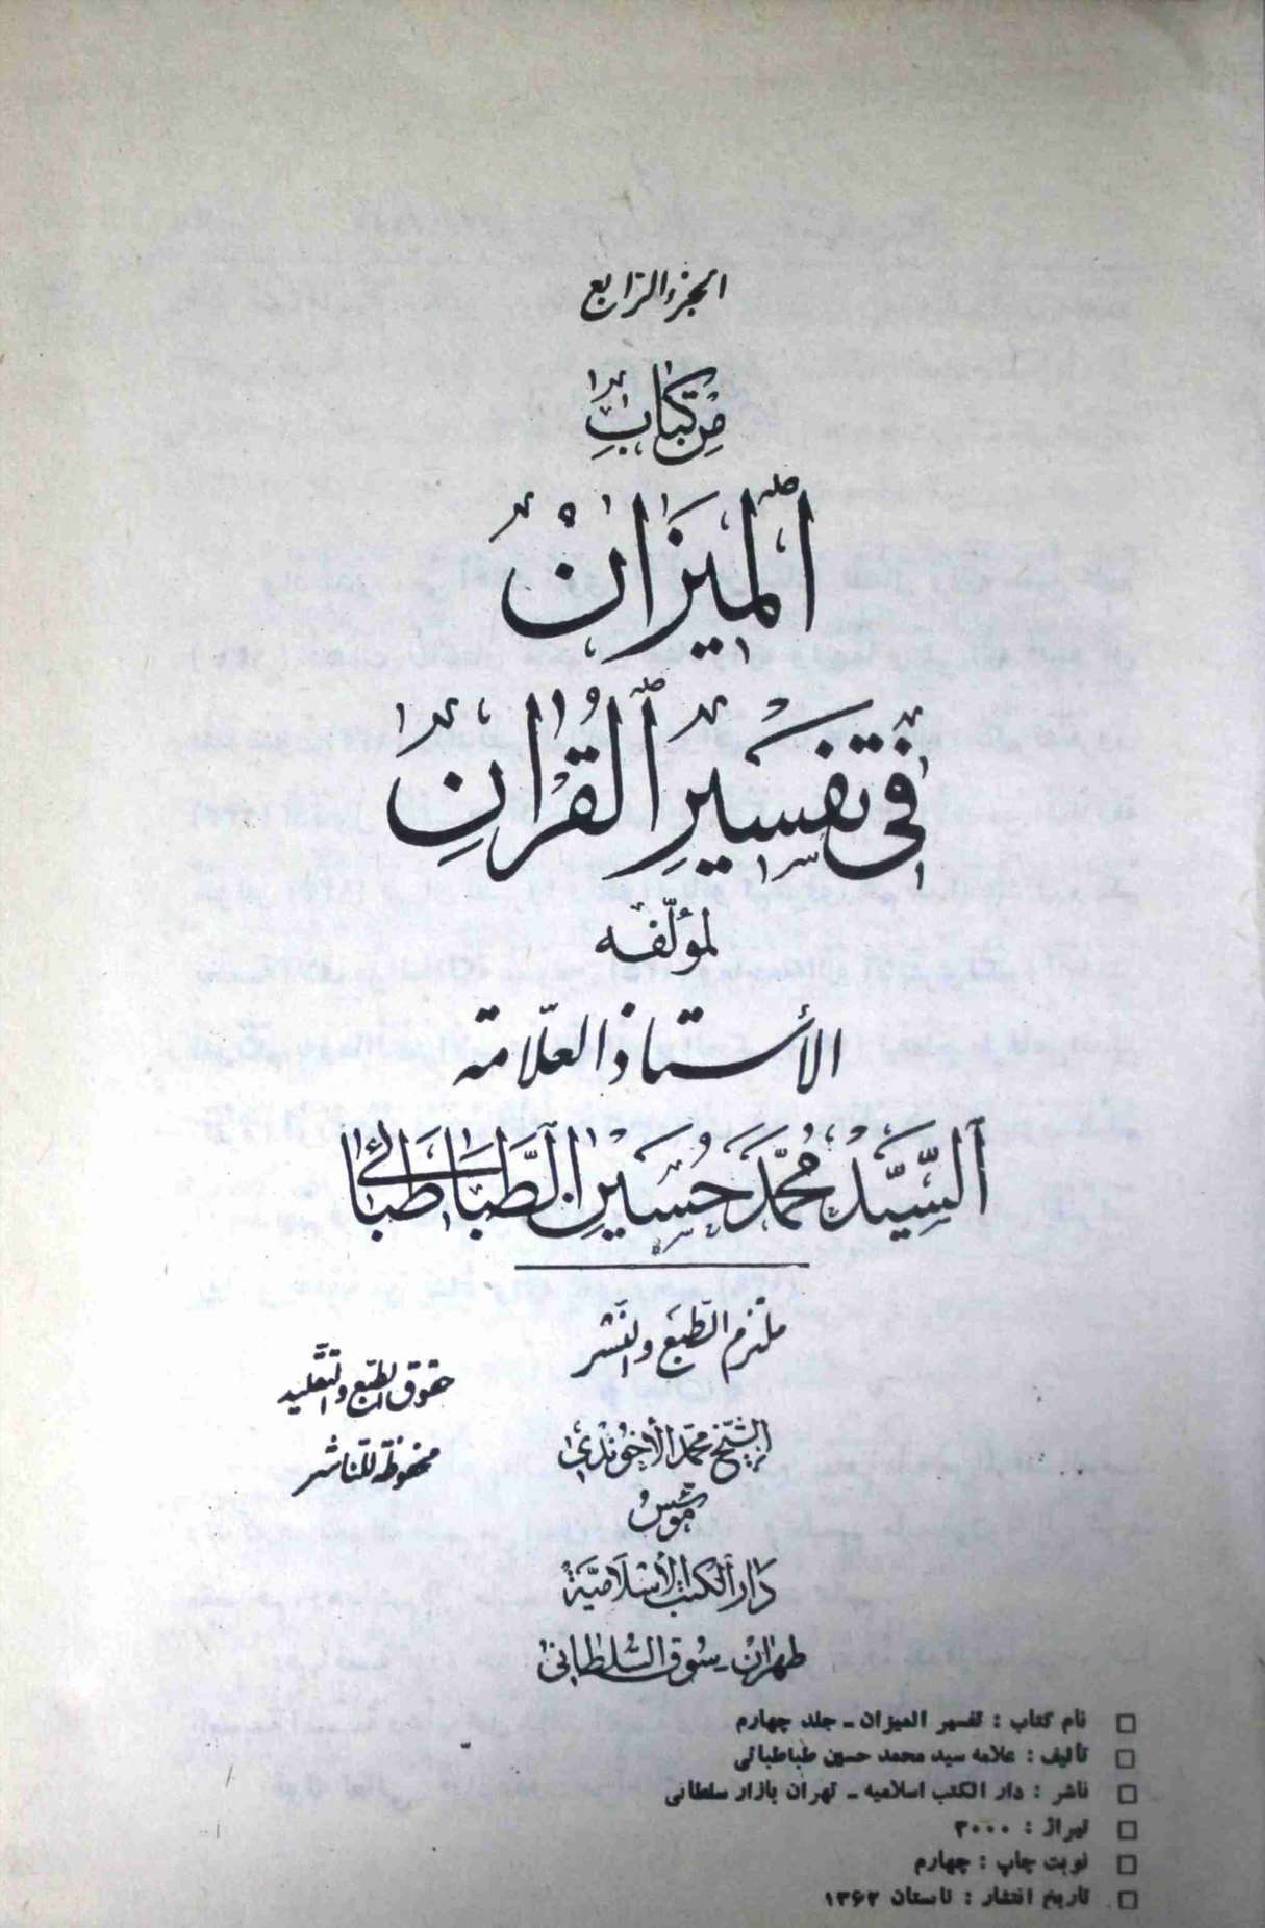 الجزء الرابع
مِن كِتابِ
اَلْميزَانُ
فِي تَفْسيرِ اَلْقُرْانِ
لمؤلّفه
الأستاذ العلّامة
اَلسَّيِّدْ مُحَمَّدْ حُسَيْنِ الطَّبَاطَبائي
ملتزم الطّبع والنّشر
حقوق الطّبع والتّقليد
محفوظة للنّاشر
الشّيخ محمّد الآخوندي
مؤسّس
دَار الكتب الإسْلَاميَّة
طهران - سوق السُّلطاني
□ نام کتاب : تفسیر المیزان - جلد چهارم
□ تألیف : علامه سید محمد حسین طباطبائی
□ ناشر : دار الکتب اسلامیه - تهران بازار سلطانی
□ تیراژ : ۳۰۰۰
□ نوبت چاپ : چهارم
□ تاریخ انتشار : تابستان ۱۳۶۲